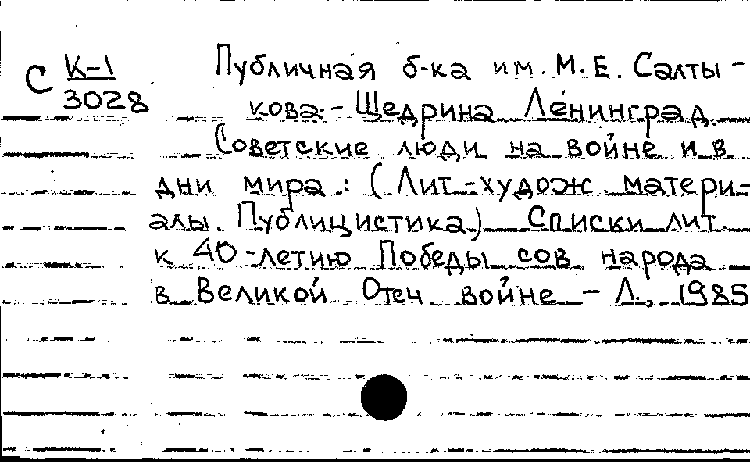 С К-1 Публичная б-ка им. М. Е. Салты-
3028 кова-Щедрина Ленинград
Советские люди на войне и в
дни мира: (Лит.-худож материа-
алы. Публицистика) Списки лит
к 40-летию Победы сов народа
в Великой Отеч войне - Л., 1985